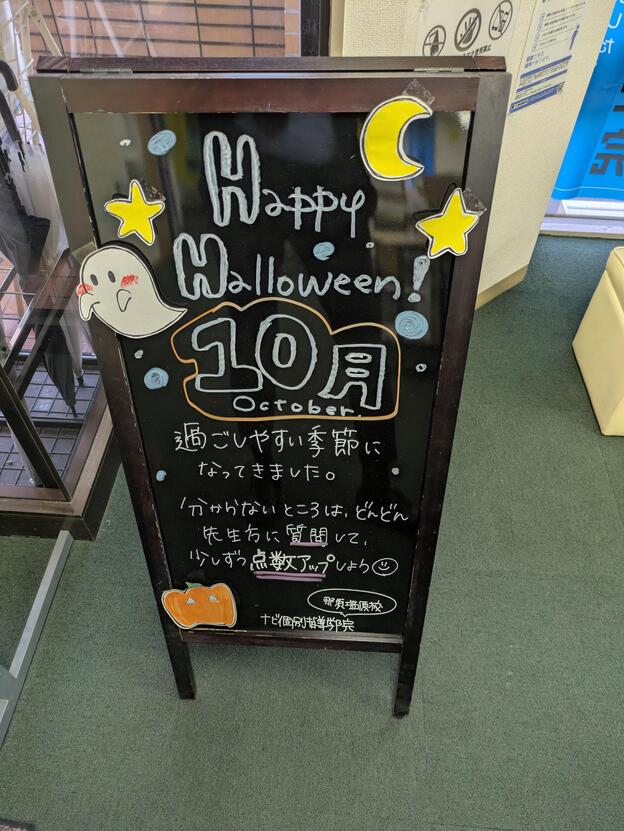 Happy
Halloween!
10月
October.
過ごしやすい季節に
なってきました。
分からないところは、どんどん
先生方に質問して、
少しずつ点数アップしよう
那須塩原校
ナビ個別指導学院